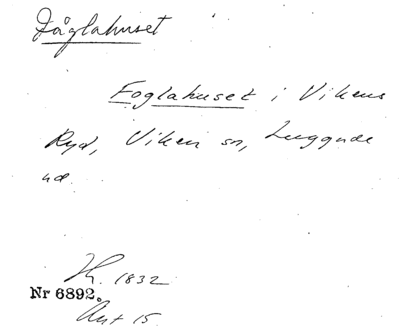 Fåglahuset
Foglahuset i Vikens
Ryd, Viken sn, Luggude
hd.
Th. 1832
Nr 6892.
Ant 15